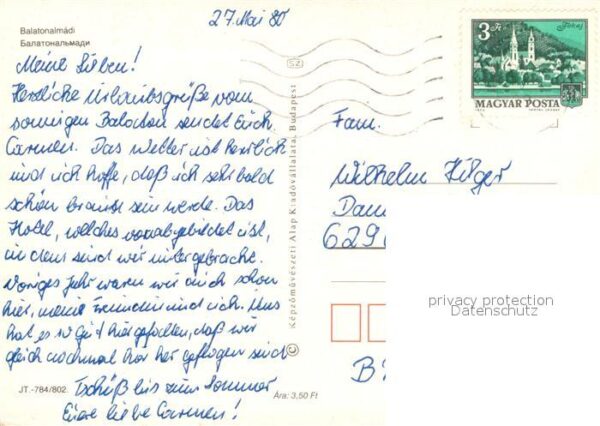 27. Mai 80
Balatonalmádi
Балатональмади
Meine Lieben!
Herzliche Urlaubsgrüße vom
sonnigen Balaton sendet Euch
Carmen. Das Wetter ist herrlich
und ich hoffe, daß ich sehr bald
schön braun sein werde. Das
Hotel, welches vorn abgebildet ist,
in dem sind wir untergebracht.
Voriges Jahr waren wir auch schon
hier, meine Freundin und ich. Uns
hat es so gut hier gefallen, daß wir
gleich nochmal hier her geflogen sind
Tschüß bis zum Sommer
Eure liebe Carmen!
JT.-784/802.
Ára: 3,50 Ft
Képzőművészeti Alap Kiadóvállalata, Budapest
SZ
3 Ft
MAGYAR POSTA
Fam.
Wilhelm Hilger
Dam
629
B
privacy protection
Datenschutz